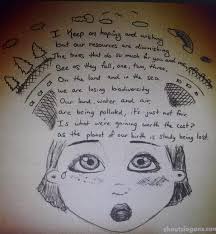 I keep on hoping and wishing
but our resources are diminishing
The trees that do so much for you and me
See as they fall, one, two, three
On the land and in the sea
we are losing biodiversity
Our land, water and air,
are being polluted, it's just not fair
Is what we're gaining worth the cost?
as the planet of our birth is slowly being lost
shoutslogans.com